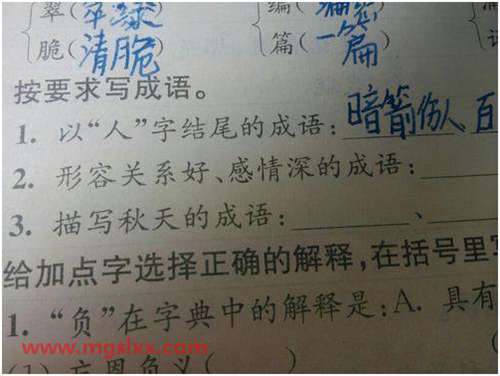 翠(翠绿
脆(清脆)
编(
篇(一篇)
按要求写成语。
1. 以“人”字结尾的成语:暗箭伤人 百
2. 形容关系好、感情深的成语:
3. 描写秋天的成语: 、
给加点字选择正确的解释,在括号里写
1. “负”在字典中的解释是:A. 具有
www.mgslxx.com
(1) 忘恩负义( )